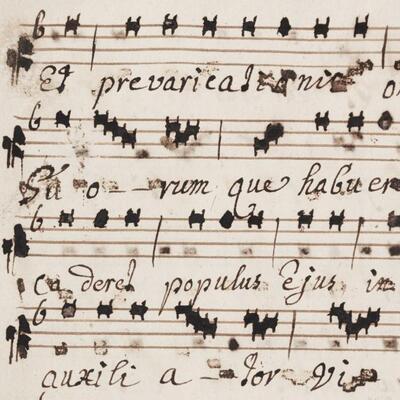 Et prevaricationis
Su o--rum que habuer
ca deret populus Ejus in
auxili a -tor Vi